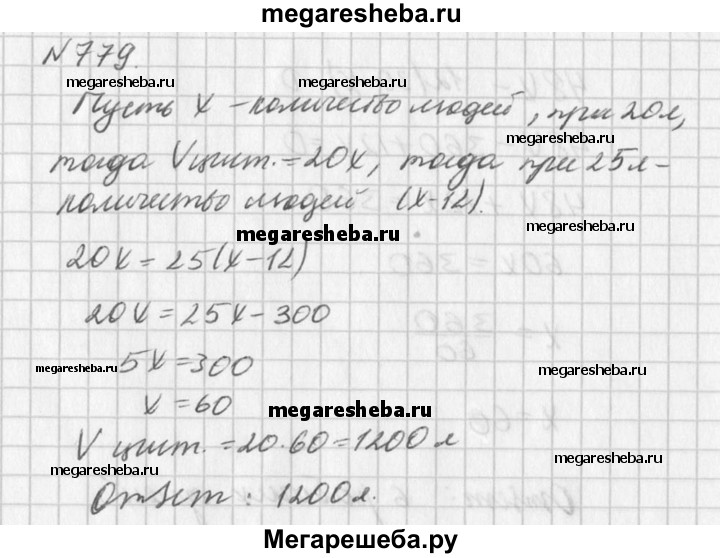 megaresheba.ru
N 779.
megaresheba.ru
megaresheba.ru
Пусть x - количество людей, при 20л,
megaresheba.ru
тогда Vцист. = 20x, тогда при 25л -
количество людей (x-12).
megaresheba.ru
megaresheba.ru
20x = 25(x-12)
20x = 25x - 300
megaresheba.ru
megaresheba.ru
5x = 300
x = 60
megaresheba.ru
V цист. = 20·60 = 1200 л
megaresheba.ru
megaresheba.ru
Ответ: 1200л.
Мегарешеба.ру